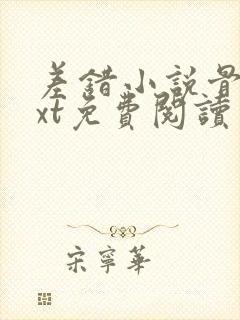 差錯小說量
xt免費閱讀
宋寧華